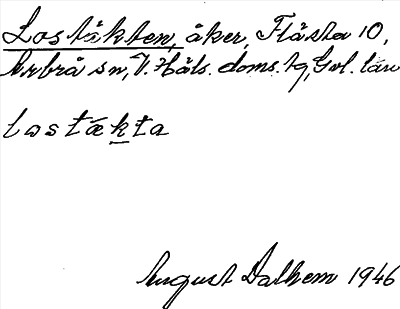 Lostäkten, åker, Flästa 10,
Arbrå sn, V. Häls. doms. tg, Gvl. län
lostækta
August Dalhem 1946